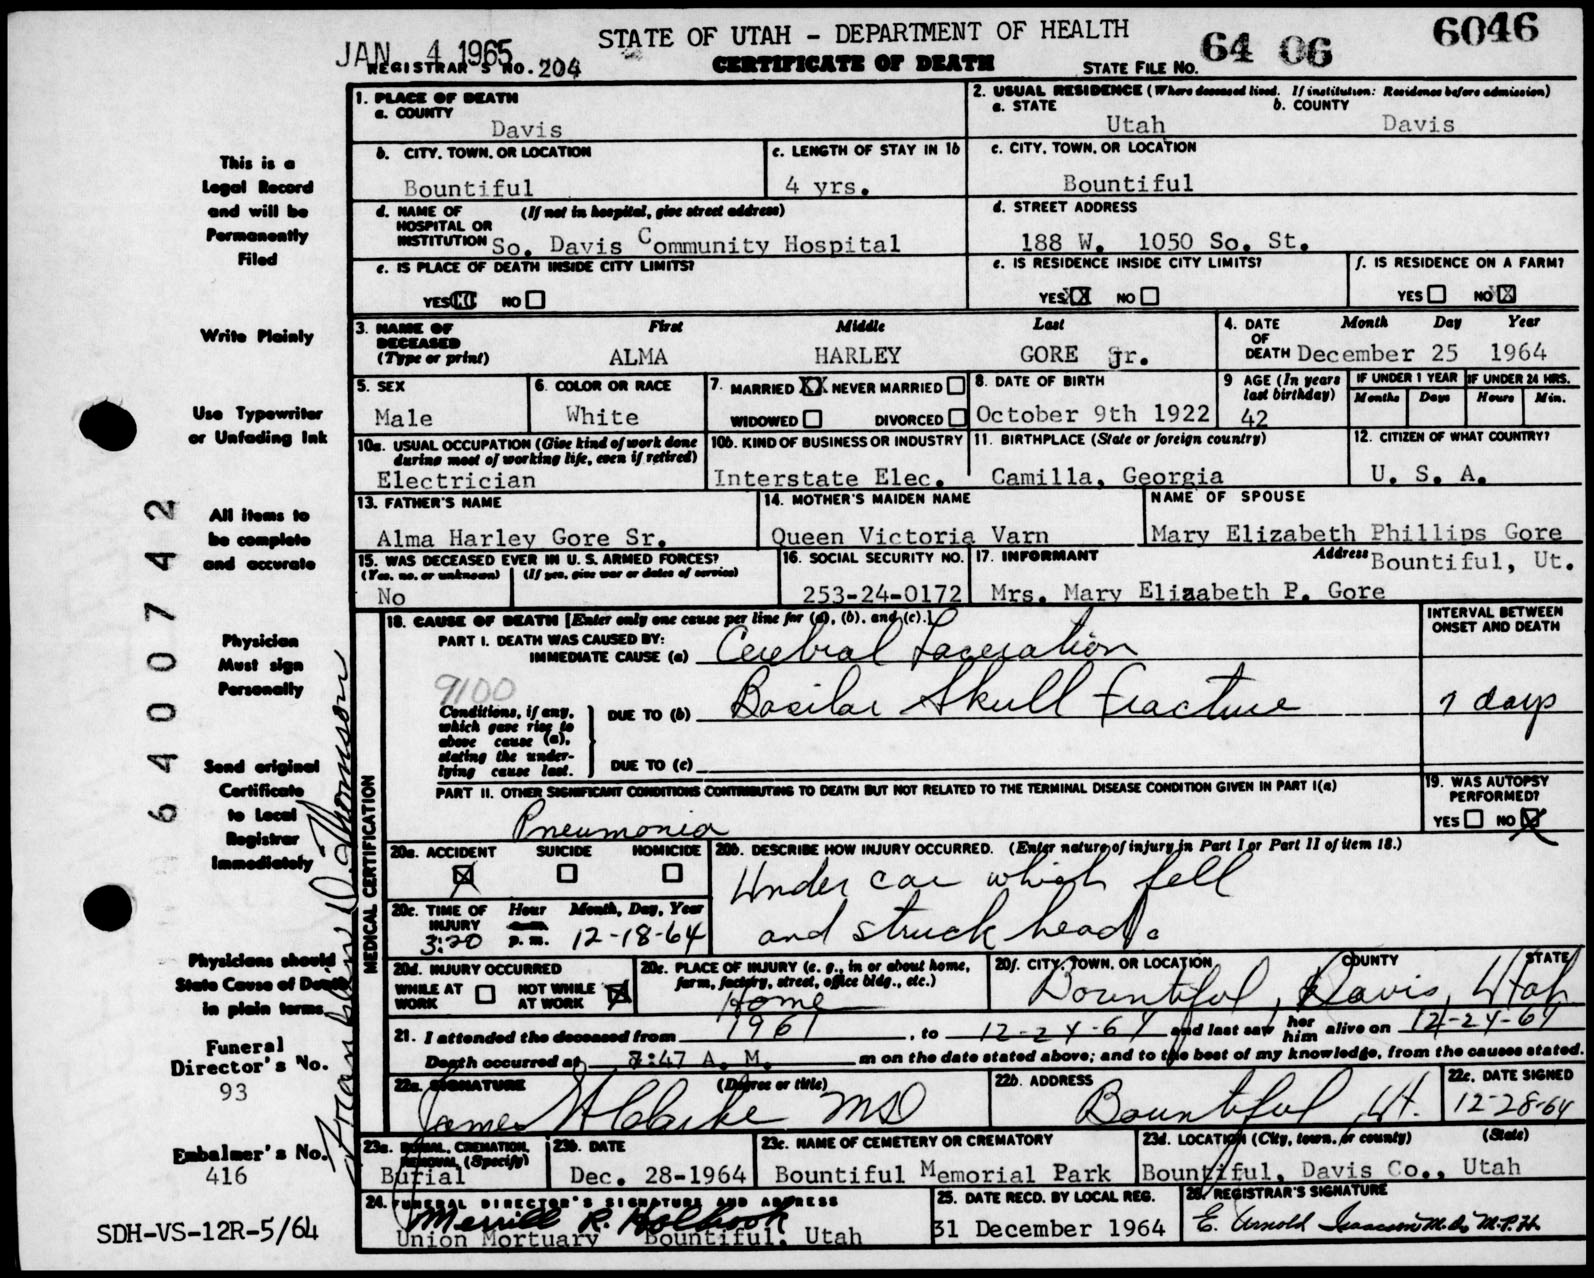 JAN 4 1965
REGISTRAR'S NO. 204
STATE OF UTAH - DEPARTMENT OF HEALTH
CERTIFICATE OF DEATH
STATE FILE NO. 64 06 6046
This is a
Legal Record
and will be
Permanently
Filed
Write Plainly
Use Typewriter
or Unfading Ink
All items to
be complete
and accurate
Physician
Must sign
Personally
Send original
Certificate
to Local
Registrar
Immediately
Physicians should
State Cause of Death
in plain terms
Funeral
Director's No.
93
Embalmer's No.
416
SDH-VS-12R-5/64
6400742
Franklin D. Thomson
1. PLACE OF DEATH
a. COUNTY
Davis
2. USUAL RESIDENCE (Where deceased lived. If institution: Residence before admission)
a. STATE b. COUNTY
Utah Davis
b. CITY, TOWN, OR LOCATION
Bountiful
c. LENGTH OF STAY IN 1b
4 yrs.
c. CITY, TOWN, OR LOCATION
Bountiful
d. NAME OF (If not in hospital, give street address)
HOSPITAL OR
INSTITUTION So. Davis Community Hospital
d. STREET ADDRESS
188 W. 1050 So. St.
e. IS PLACE OF DEATH INSIDE CITY LIMITS?
YES NO
e. IS RESIDENCE INSIDE CITY LIMITS?
YES X NO
f. IS RESIDENCE ON A FARM?
YES NO X
3. NAME OF First Middle Last
DECEASED
(Type or print) ALMA HARLEY GORE Jr.
4. DATE Month Day Year
OF
DEATH December 25 1964
5. SEX
Male
6. COLOR OR RACE
White
7. MARRIED XX NEVER MARRIED
WIDOWED DIVORCED
8. DATE OF BIRTH
October 9th 1922
9 AGE (In years
last birthday)
42
IF UNDER 1 YEAR IF UNDER 24 HRS.
Months Days Hours Min.
10a. USUAL OCCUPATION (Give kind of work done
during most of working life, even if retired)
Electrician
10b. KIND OF BUSINESS OR INDUSTRY
Interstate Elec.
11. BIRTHPLACE (State or foreign country)
Camilla, Georgia
12. CITIZEN OF WHAT COUNTRY?
U. S. A.
13. FATHER'S NAME
Alma Harley Gore Sr.
14. MOTHER'S MAIDEN NAME
Queen Victoria Varn
NAME OF SPOUSE
Mary Elizabeth Phillips Gore
15. WAS DECEASED EVER IN U. S. ARMED FORCES?
(Yes, no, or unknown) (If yes, give war or dates of service)
No
16. SOCIAL SECURITY NO.
253-24-0172
17. INFORMANT Address Bountiful, Ut.
Mrs. Mary Elizabeth P. Gore
MEDICAL CERTIFICATION
18. CAUSE OF DEATH [Enter only one cause per line for (a), (b), and (c).]
PART I. DEATH WAS CAUSED BY:
IMMEDIATE CAUSE (a) Cerebral Laceration
INTERVAL BETWEEN
ONSET AND DEATH
9100
Conditions, if any,
which gave rise to
above cause (a),
stating the under-
lying cause last.
DUE TO (b) Basilar Skull fracture 7 days
DUE TO (c)
PART II. OTHER SIGNIFICANT CONDITIONS CONTRIBUTING TO DEATH BUT NOT RELATED TO THE TERMINAL DISEASE CONDITION GIVEN IN PART I(a)
Pneumonia
19. WAS AUTOPSY
PERFORMED?
YES NO X
20a. ACCIDENT SUICIDE HOMICIDE
X
20b. DESCRIBE HOW INJURY OCCURRED. (Enter nature of injury in Part I or Part II of item 18.)
Under car which fell
and struck head.
20c. TIME OF Hour Month, Day, Year
INJURY
3:20 p. m. 12-18-64
20d. INJURY OCCURRED
WHILE AT NOT WHILE X
WORK AT WORK
20e. PLACE OF INJURY (e. g., in or about home,
farm, factory, street, office bldg., etc.)
Home
20f. CITY, TOWN, OR LOCATION COUNTY STATE
Bountiful, Davis, Utah
21. I attended the deceased from 1961, to 12-24-64 and last saw her him alive on 12-24-64
Death occurred at 8:47 A. M. m on the date stated above; and to the best of my knowledge, from the causes stated.
22a. SIGNATURE (Degree or title)
James H Clarke MD
22b. ADDRESS
Bountiful, Ut.
22c. DATE SIGNED
12-28-64
23a. BURIAL, CREMATION,
REMOVAL (Specify)
Burial
23b. DATE
Dec. 28-1964
23c. NAME OF CEMETERY OR CREMATORY
Bountiful Memorial Park
23d. LOCATION (City, town, or county) (State)
Bountiful, Davis Co., Utah
24. FUNERAL DIRECTOR'S SIGNATURE AND ADDRESS
Merrill R. Holbrook
Union Mortuary Bountiful, Utah
25. DATE RECD. BY LOCAL REG.
31 December 1964
26. REGISTRAR'S SIGNATURE
E. Arnold Isaacson M.D., M.P.H.